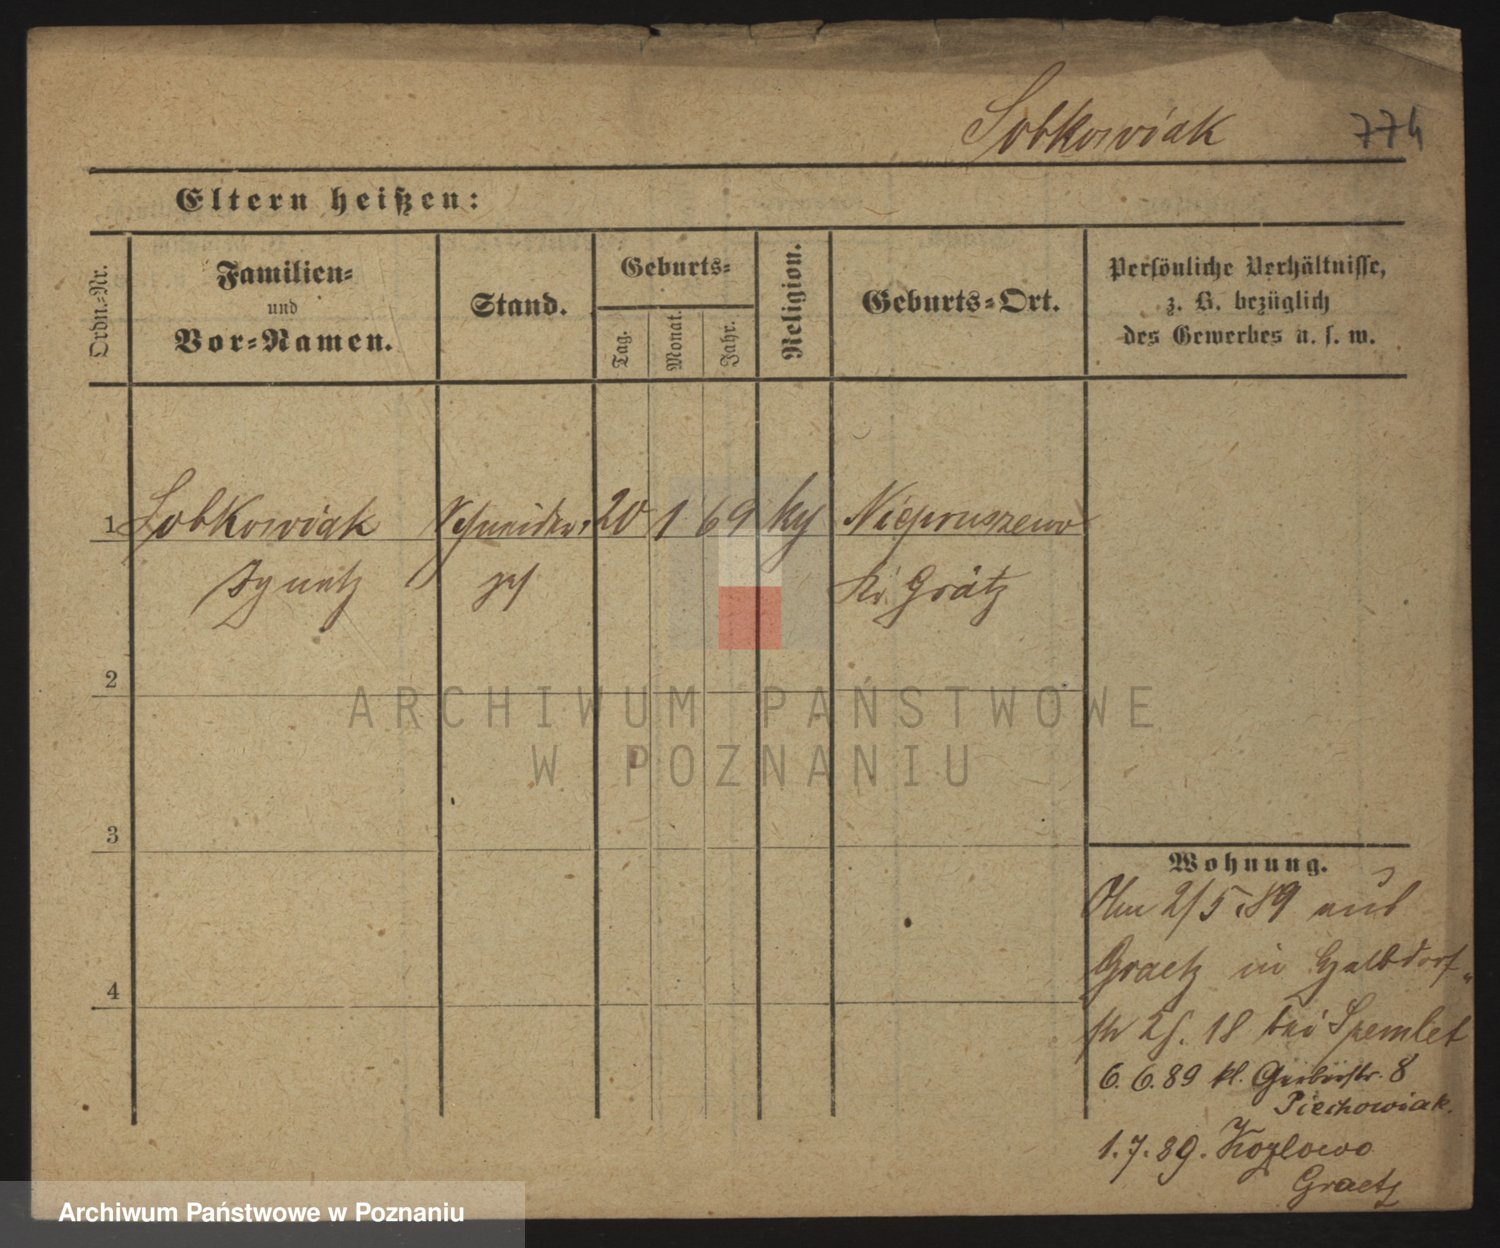 Sobkowiak 774
Eltern heißen:
Ordn.-Nr.
Familien-
und
Vor-Namen.
Stand.
Geburts-
Tag.
Monat.
Jahr.
Religion.
Geburts-Ort.
Persönliche Verhältnisse,
z. B. bezüglich
des Gewerbes u. s. w.
1 Sobkowiak Schneider 20 1 69 Niepruszewo
Ignatz Kr. Grätz
2
3
4
Wohnung.
Am 2/5.89 aus
Graetz in Halbdorf-
str 18 bei
6. 6. 89 kl. Gerberstr. 8
Piechowiak.
1. 7. 89. Kozlowo
Graetz
ARCHIWUM PAŃSTWOWE
W POZNANIU
Archiwum Państwowe w Poznaniu